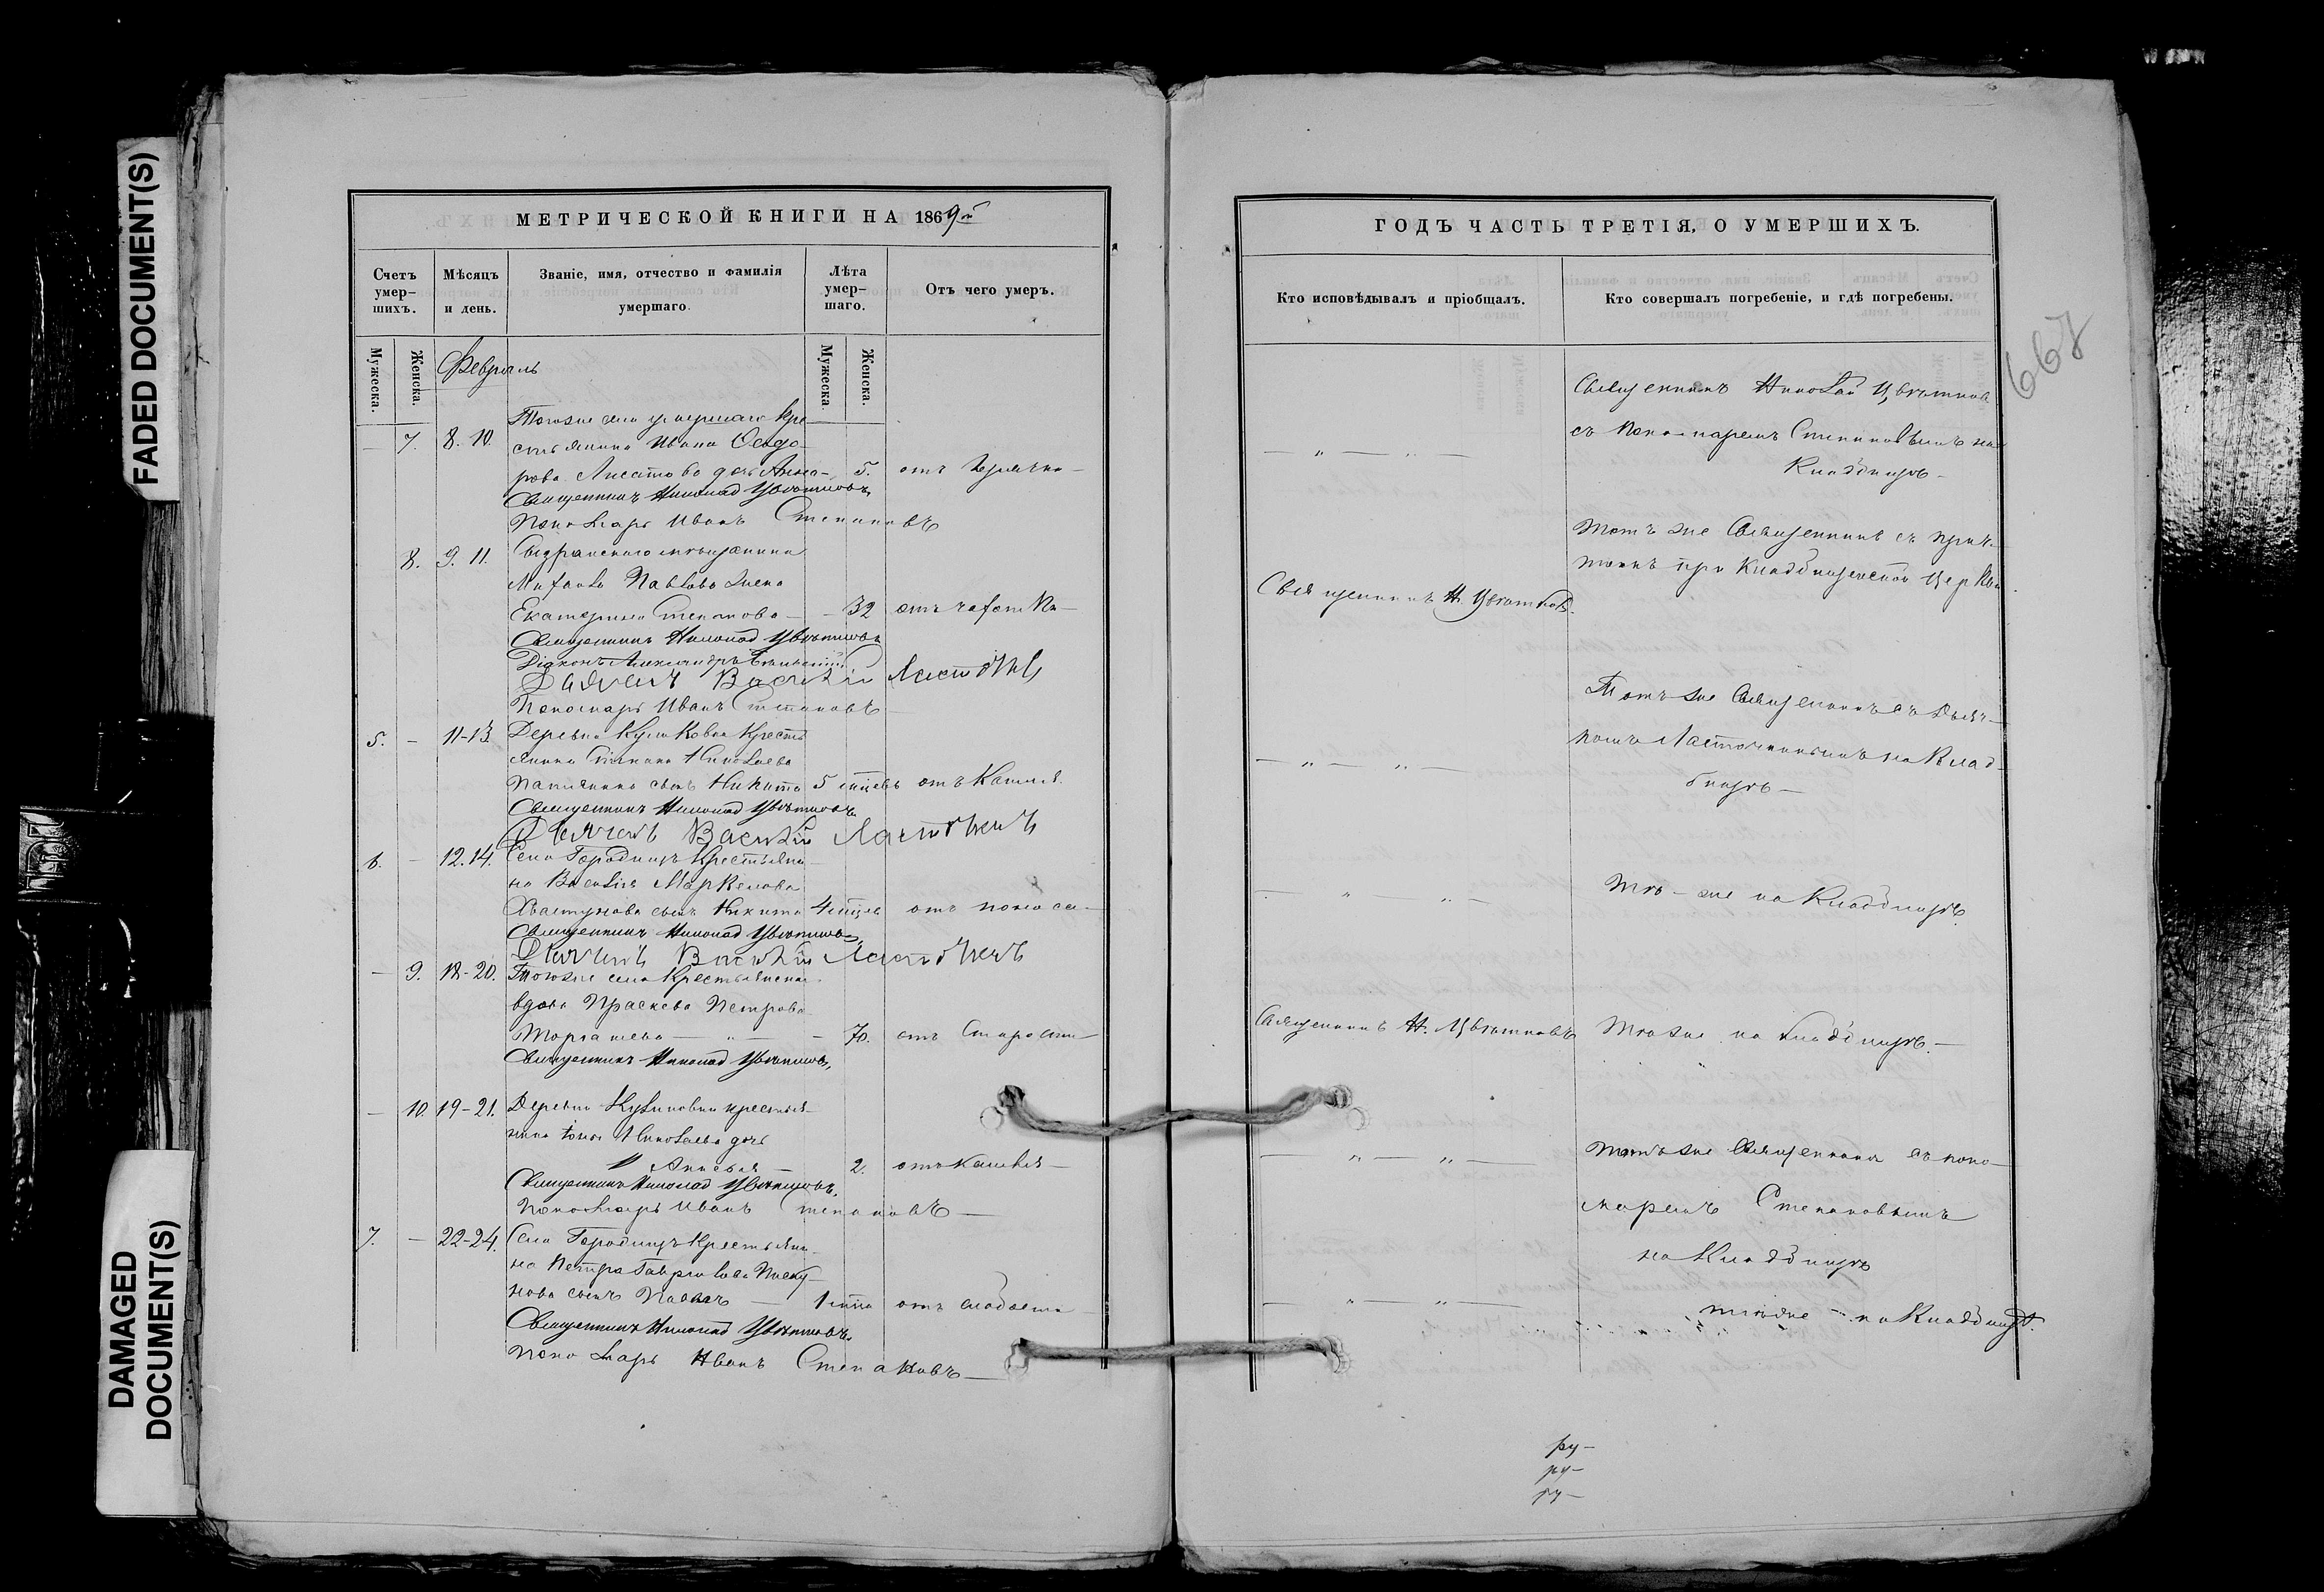 FADED DOCUMENT(S)
DAMAGED
DOCUMENT(S)
МЕТРИЧЕСКОЙ КНИГИ НА 1869й
Счетъ умер-шихъ.
Мѣсяцъ и день.
Званіе, имя, отчество и фамилія умершаго.
Лѣта умер-шаго.
Отъ чего умеръ.
Мужеска.
Женска.
Февраль
Мужеска.
Женска.
Тогоже села Кре-
— 7. 8. 10. стьянина Ивана Ѳедо-
рова дочь Анна — 5. отъ
Священникъ Николай Цвѣтковъ
Пономарь Иванъ Степановъ
8. 9. 11. Сызранскаго мѣщанина
Павлова жена
Екатерина Степанова — 32 отъ чахотки —
Священникъ Николай Цвѣтковъ
Діаконъ Александръ
Дьячекъ Василій Ласточкинъ
Пономарь Иванъ Степановъ
5. — 11-13. Деревни Куликовки Кресть
янина Степана Николаева
сынъ Никита 5 мѣсяцевъ отъ Кашля.
Священникъ Николай Цвѣтковъ
Дьячекъ Василій Ласточкинъ
6. — 12. 14. Села Городищъ Крестьяни-
на Василія Маркелова
Хвастунова сынъ Никита 4 мѣсяцевъ отъ поноса —
Священникъ Николай Цвѣтковъ
Дьячекъ Василій Ласточкинъ
— 9. 18-20. Тогоже села Крестьянская
вдова Праскева Петрова
— „ — 70. отъ Старости —
Священникъ Николай Цвѣтковъ
— 10. 19-21. Деревни Куликовки крестья-
нина Николаева дочь
2. отъ кашля —
Священникъ Николай Цвѣтковъ
Пономарь Иванъ Степановъ —
7. — 22-24. Села Городищъ Крестьяни-
на Петра Гаврилова
сынъ Павелъ — 1 отъ слабости —
Священникъ Николай Цвѣтковъ
Пономарь Иванъ Степановъ —
ГОДЪ ЧАСТЬ ТРЕТІЯ, О УМЕРШИХЪ.
Кто исповѣдывалъ и пріобщалъ.
Кто совершалъ погребеніе, и гдѣ погребены.
667
Священникъ Николай Цвѣтковъ
съ Пономаремъ Степановымъ на
— „ — „ —
Кладбищѣ —
Тотъ же Священникъ съ прич-
томъ при Кладбищенской Церкви
Священникъ Н. Цвѣтковъ.
Тотъ же Священникъ съ Дьяч-
комъ Ласточкинымъ на Клад-
— „ — „ —
бищѣ —
— „ — „ — Тѣ-же на Кладбищѣ
Священникъ Н. Цвѣтковъ Тѣже на кладбищѣ —
— „ — „ — Тотъ же Священникъ съ поно-
маремъ Степановымъ
на Кладбищѣ
— „ — „ — тѣже — на Кладбищѣ.
ру-
ру-
ру-